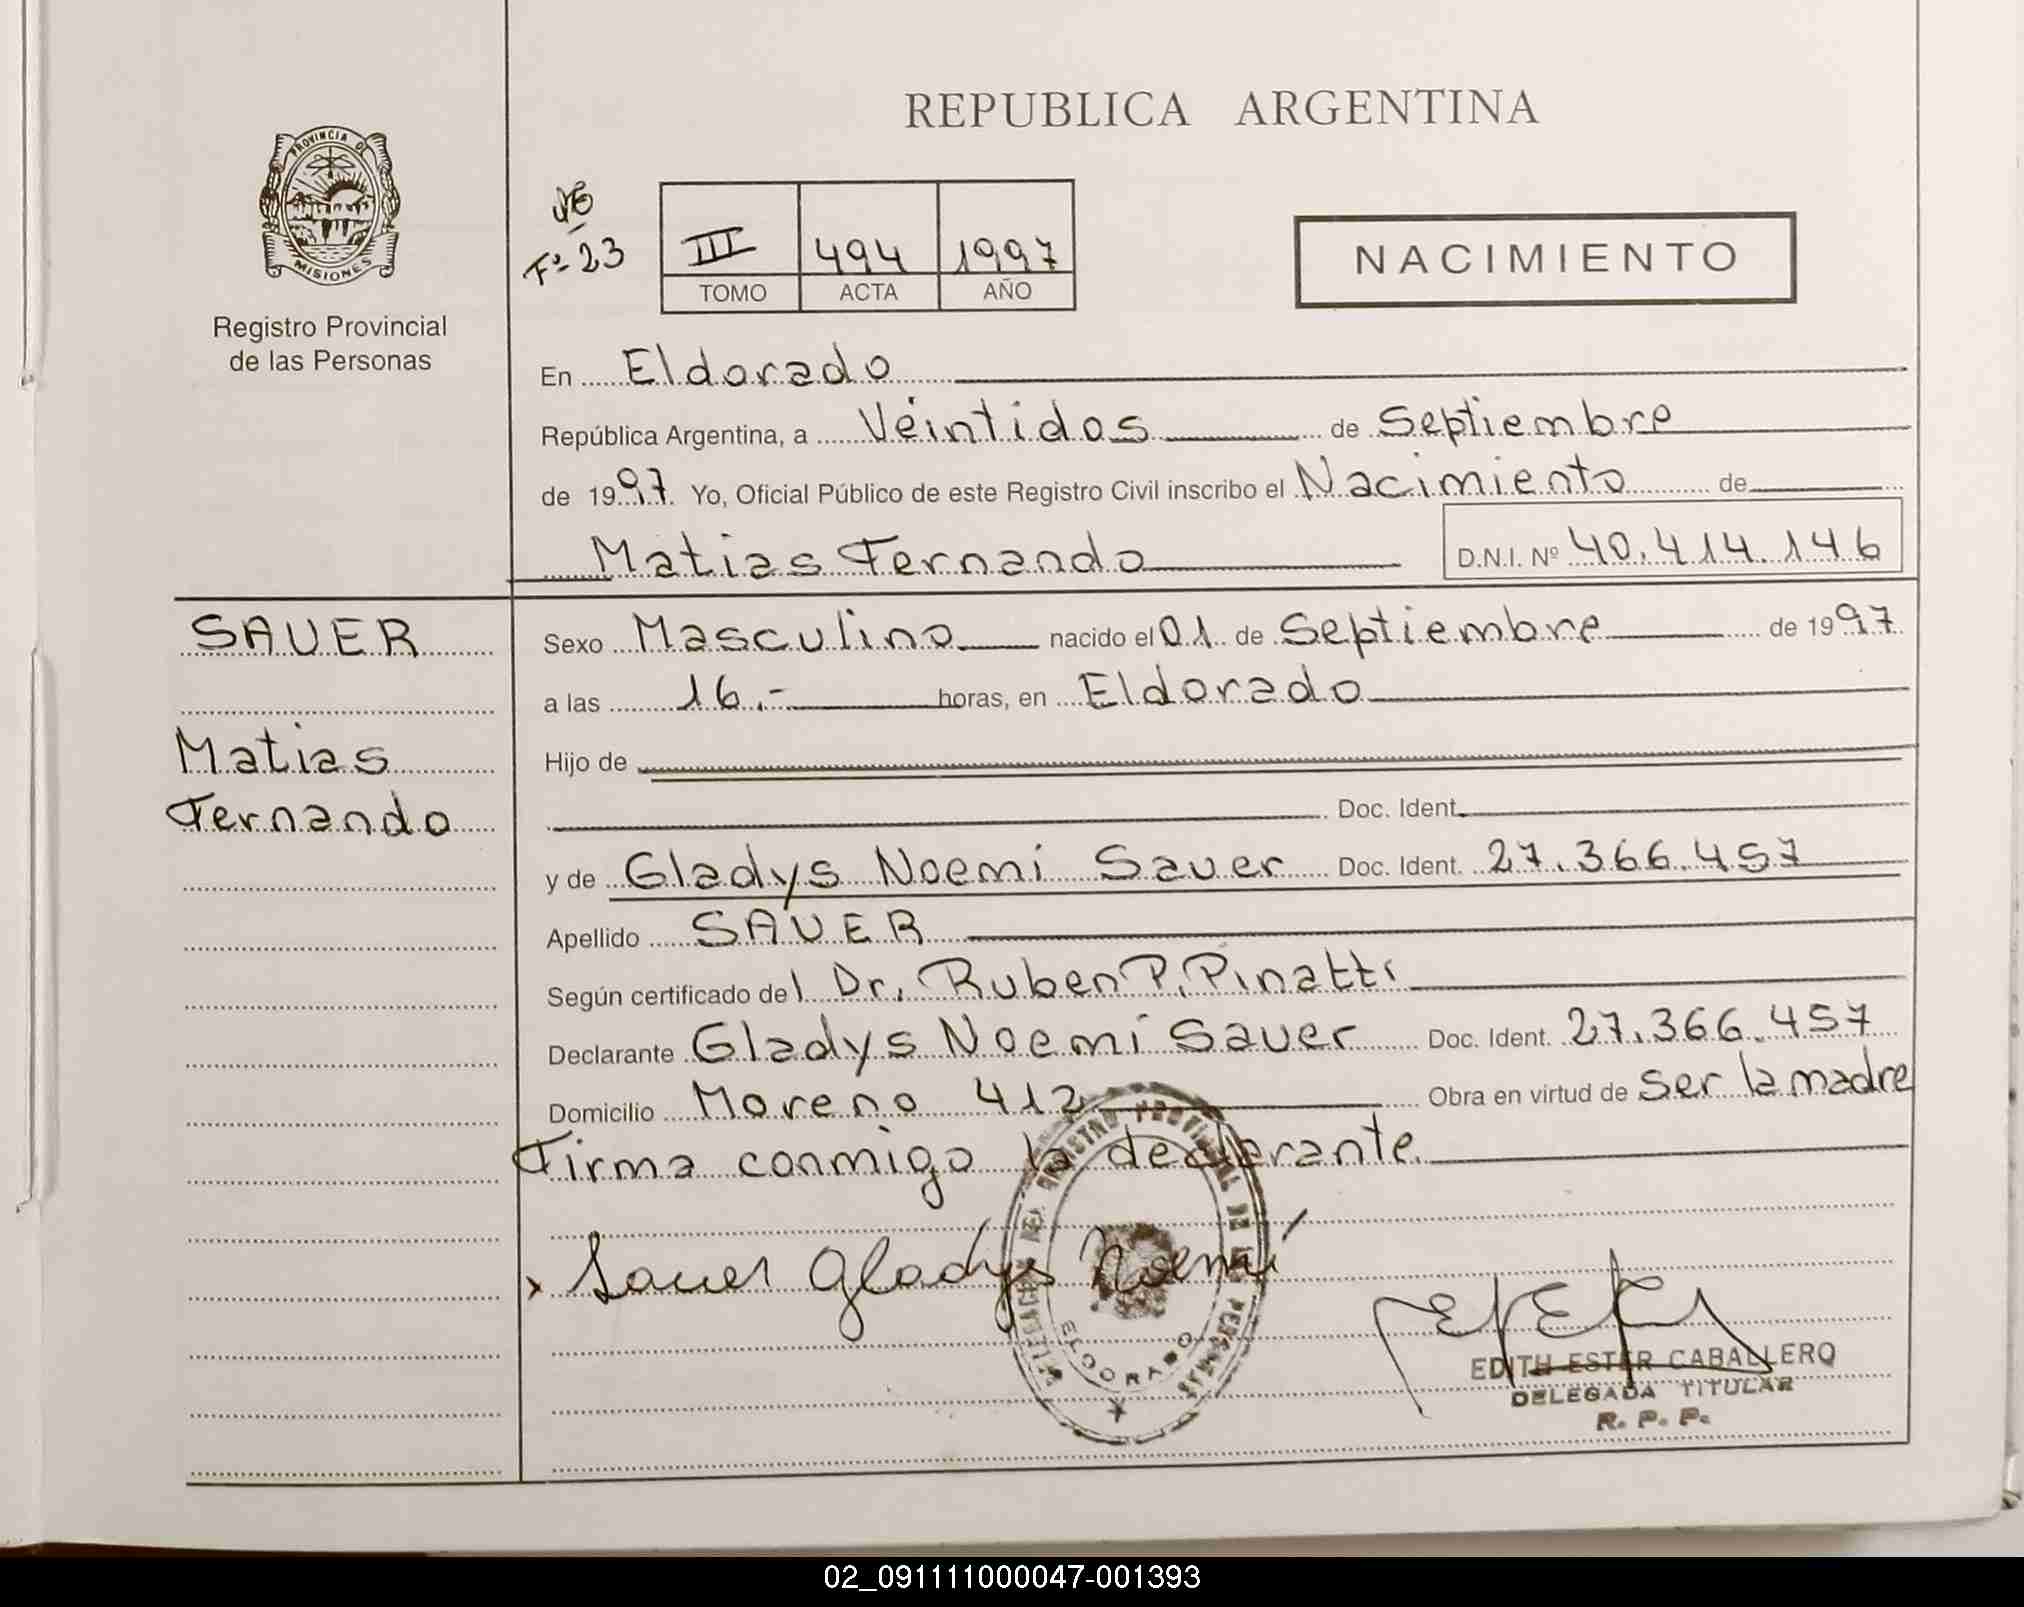 REPUBLICA ARGENTINA
PROVINCIA DE
MISIONES
Registro Provincial
de las Personas
Fº 23
III 494 1997
TOMO ACTA AÑO
NACIMIENTO
En Eldorado
República Argentina, a Veintidos de Septiembre
de 1997. Yo, Oficial Público de este Registro Civil inscribo el Nacimiento de
Matias Fernando D.N.I. Nº 40.414.146
SAUER
Matias
Fernando
Sexo Masculino nacido el 01 de Septiembre de 1997
a las 16.- horas, en Eldorado
Hijo de
Doc. Ident.
y de Gladys Noemi Sauer Doc. Ident. 27.366.457
Apellido SAUER
Según certificado del Dr. Ruben P. Pinatti
Declarante Gladys Noemi Sauer Doc. Ident. 27.366.457
Domicilio Moreno 412 Obra en virtud de Ser la madre
Firma conmigo la declarante.
x Sauer Gladys Noemí
REGISTRO PROVINCIAL DE LAS PERSONAS
ELDORADO
EDITH ESTER CABALLERO
DELEGADA TITULAR
R. P. P.
02_091111000047-001393